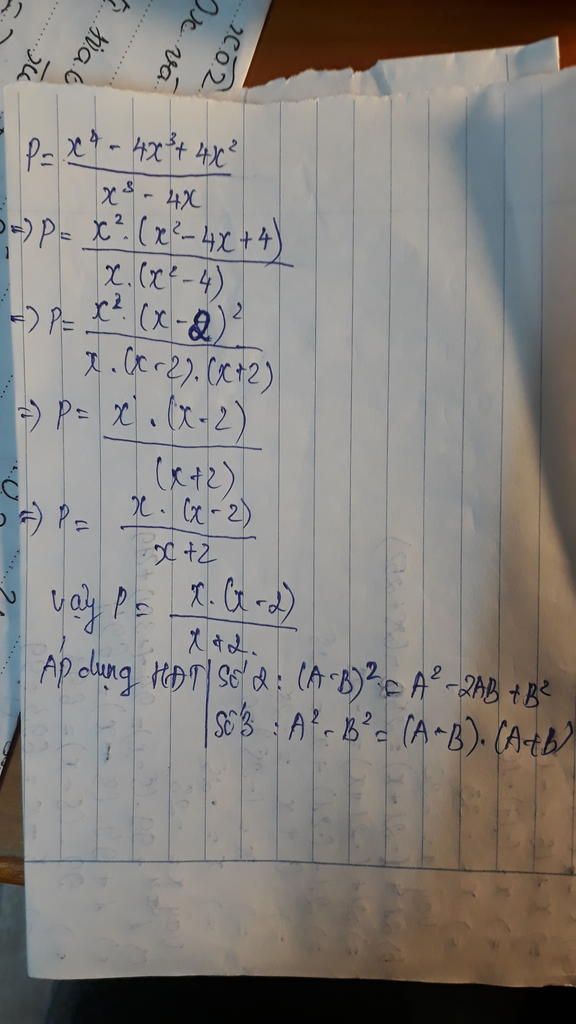 xCO2
Ox. và.
P = x⁴ - 4x³ + 4x² / x³ - 4x
=> P = x² . (x² - 4x + 4) / x . (x² - 4)
=> P = x² . (x - 2)² / x . (x - 2) . (x + 2)
=> P = x¹ . (x - 2) / (x + 2)
=> P = x . (x - 2) / x + 2
Vậy P = x . (x - 2) / x + 2.
Áp dụng HĐT | Số 2 : (A - B)² = A² - 2AB + B²
| Số 3 : A² - B² = (A - B) . (A + B)